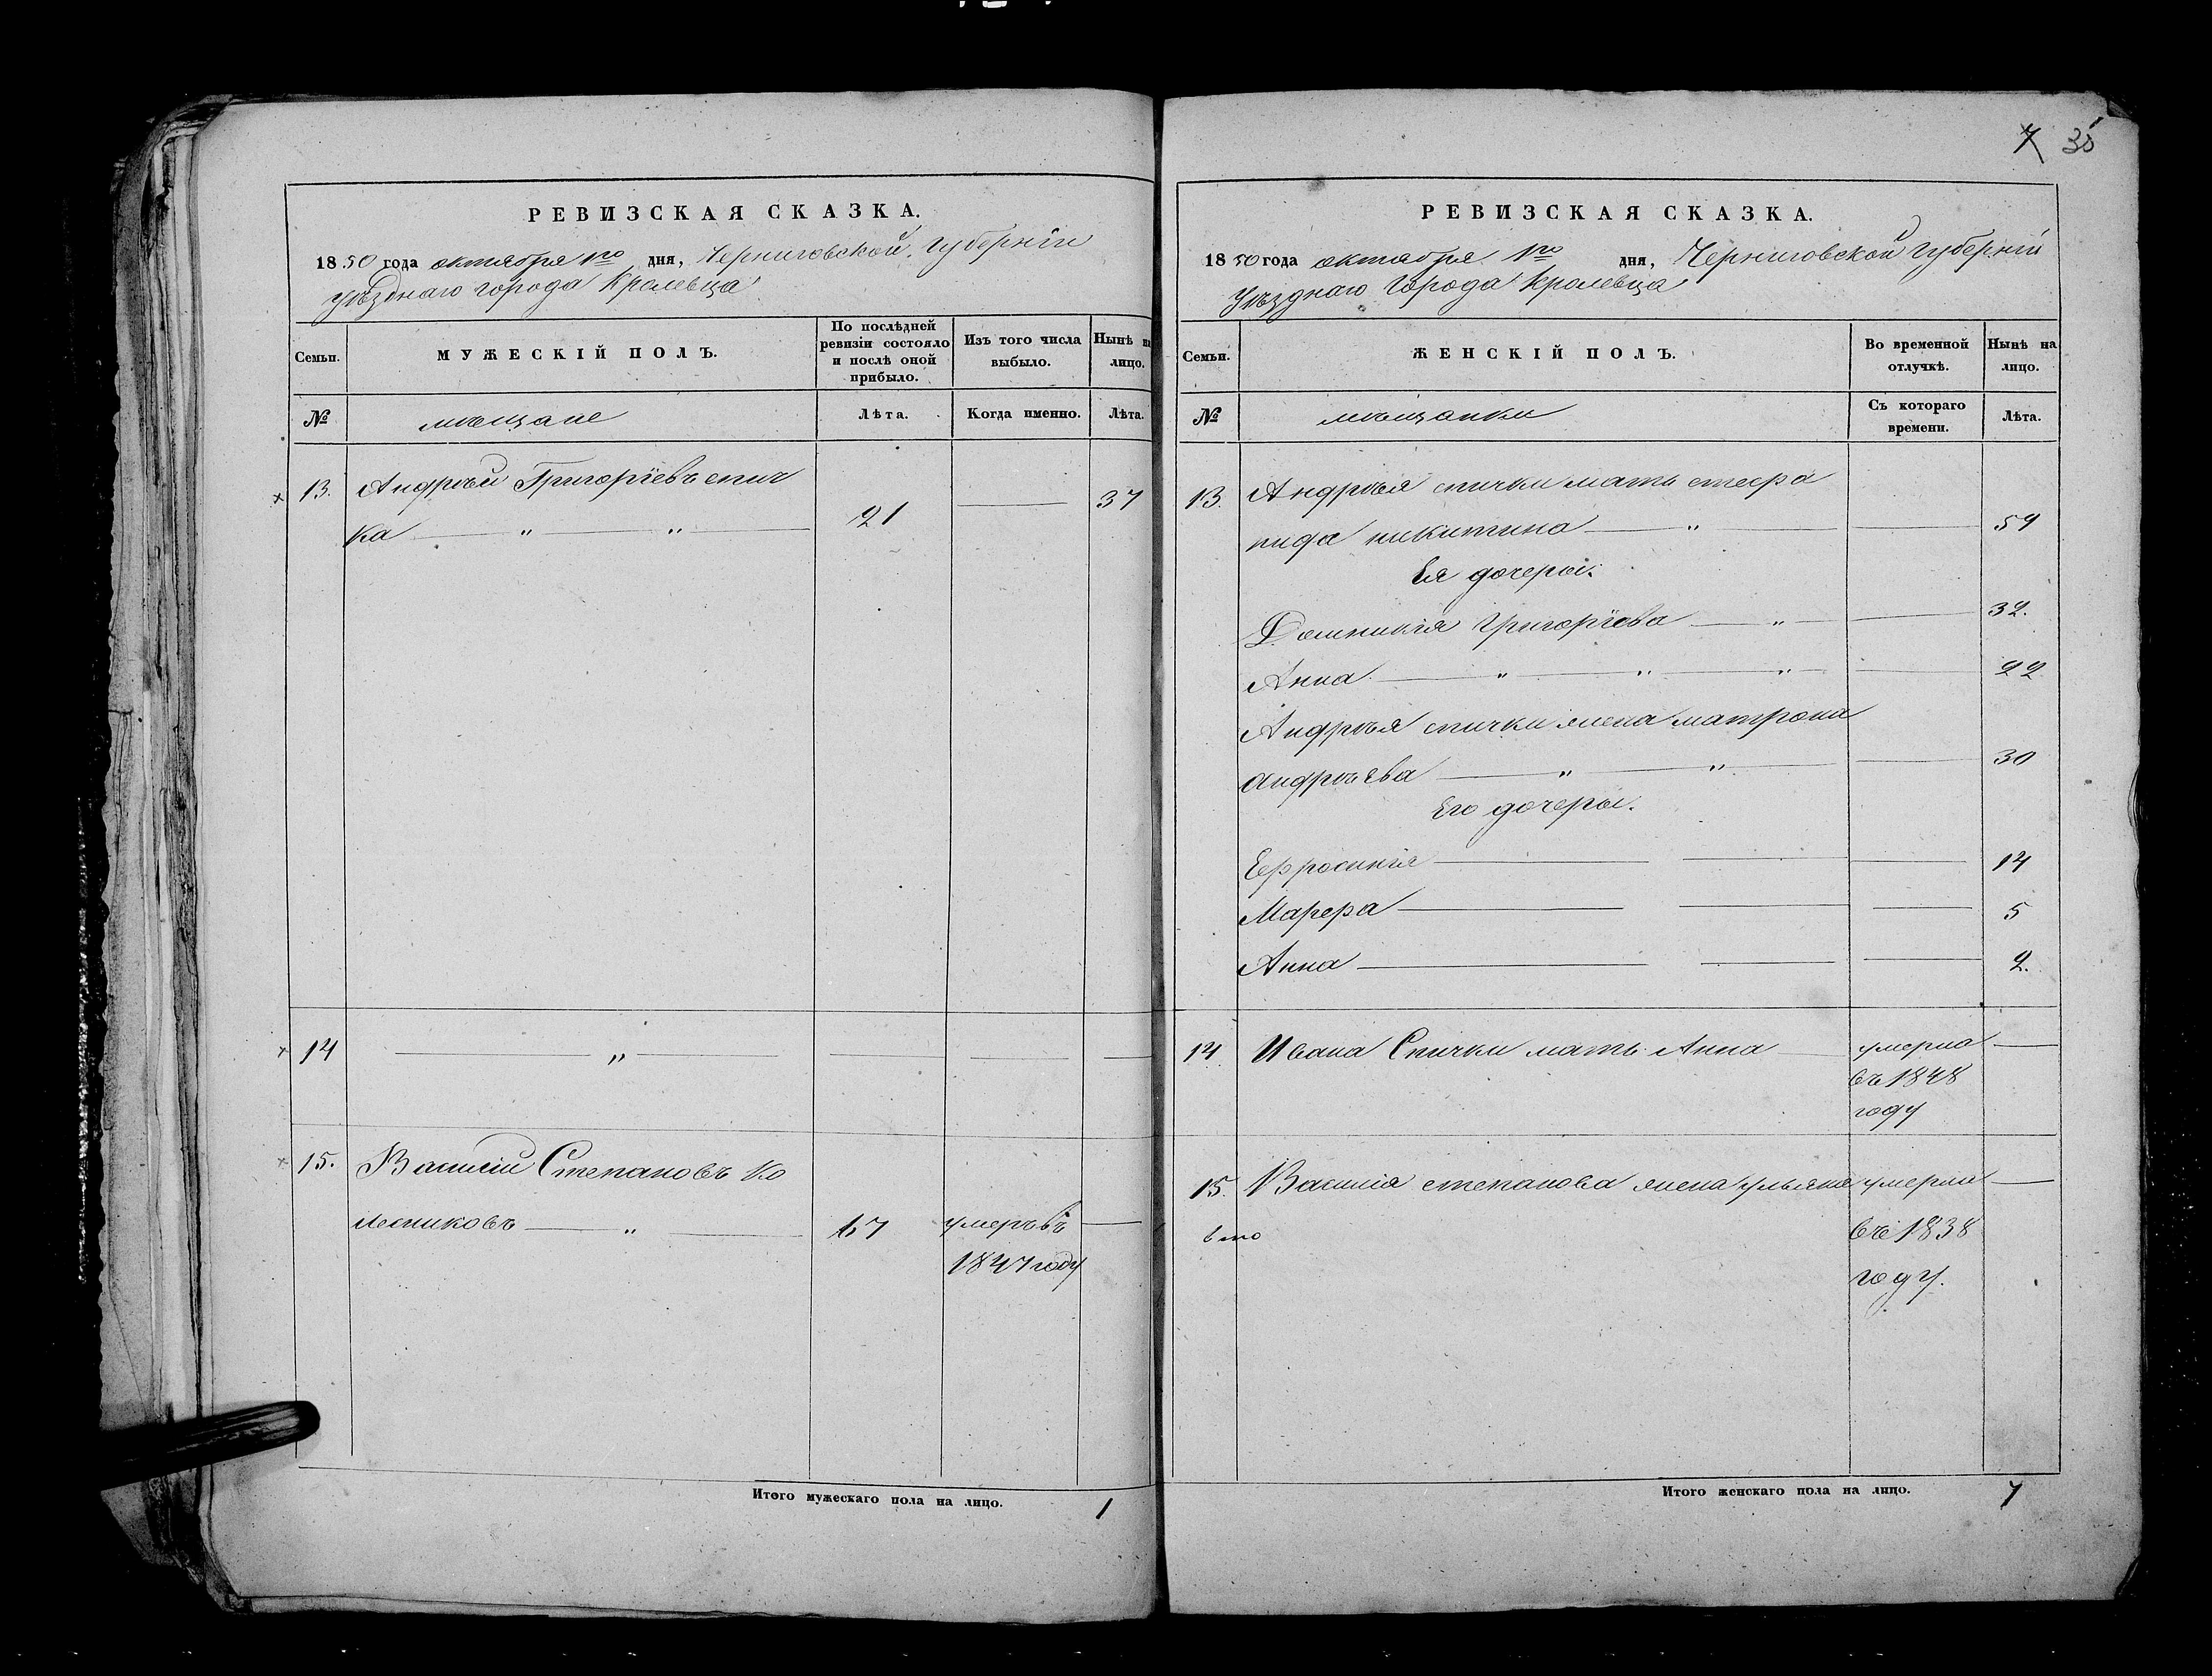 РЕВИЗСКАЯ СКАЗКА.
1850 года октября 1го дня, Черниговской Губернiи
уѣзднаго города Кролевца
Семьи.
МУЖЕСКІЙ ПОЛЪ.
По послѣдней
ревизіи состояло
и послѣ оной
прибыло.
Изъ того числа
выбыло.
Нынѣ на
лицо.
№
мѣщане
Лѣта.
Когда именно.
Лѣта.
13. Андрѣй Григорїевъ спич
37
ка " " 21
14 "
15. Василій Степановъ Ко
лесниковъ " 67 умеръ въ
1847 году
Итого мужескаго пола на лицо. 1
7 35
РЕВИЗСКАЯ СКАЗКА.
1850 года октября 1го дня, Черниговской Губернiи
Уѣзднаго Города Кролевца
Семьи.
ЖЕНСКІЙ ПОЛЪ.
Во временной
отлучкѣ.
Нынѣ на
лицо.
№
мѣщанки
Съ котораго
времени.
Лѣта.
13. Андрѣя спички мать стефа
нида никитина " 59
Ея дочеры:
Домникія Григорїева " 32.
Анна " " " 22
Андрѣя спички жена матрона
андрѣева " " 30
Его дочеры.
Ефросинія 14
Марфа 5
Анна 2.
14. Ивана Спички мать Анна умерла
въ 1848
году
15. Василія степанова жена ульяна умерла
въ 1838
году.
Итого женскаго пола на лицо. 7